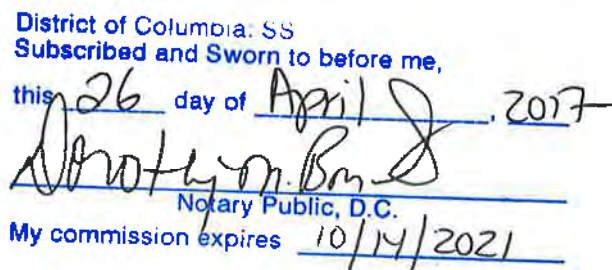 District of Columbia: SS
Subscribed and Sworn to before me,
this 26 day of April, 2017
Dorothy M.
Notary Public, D.C.
My commission expires 10/14/2021